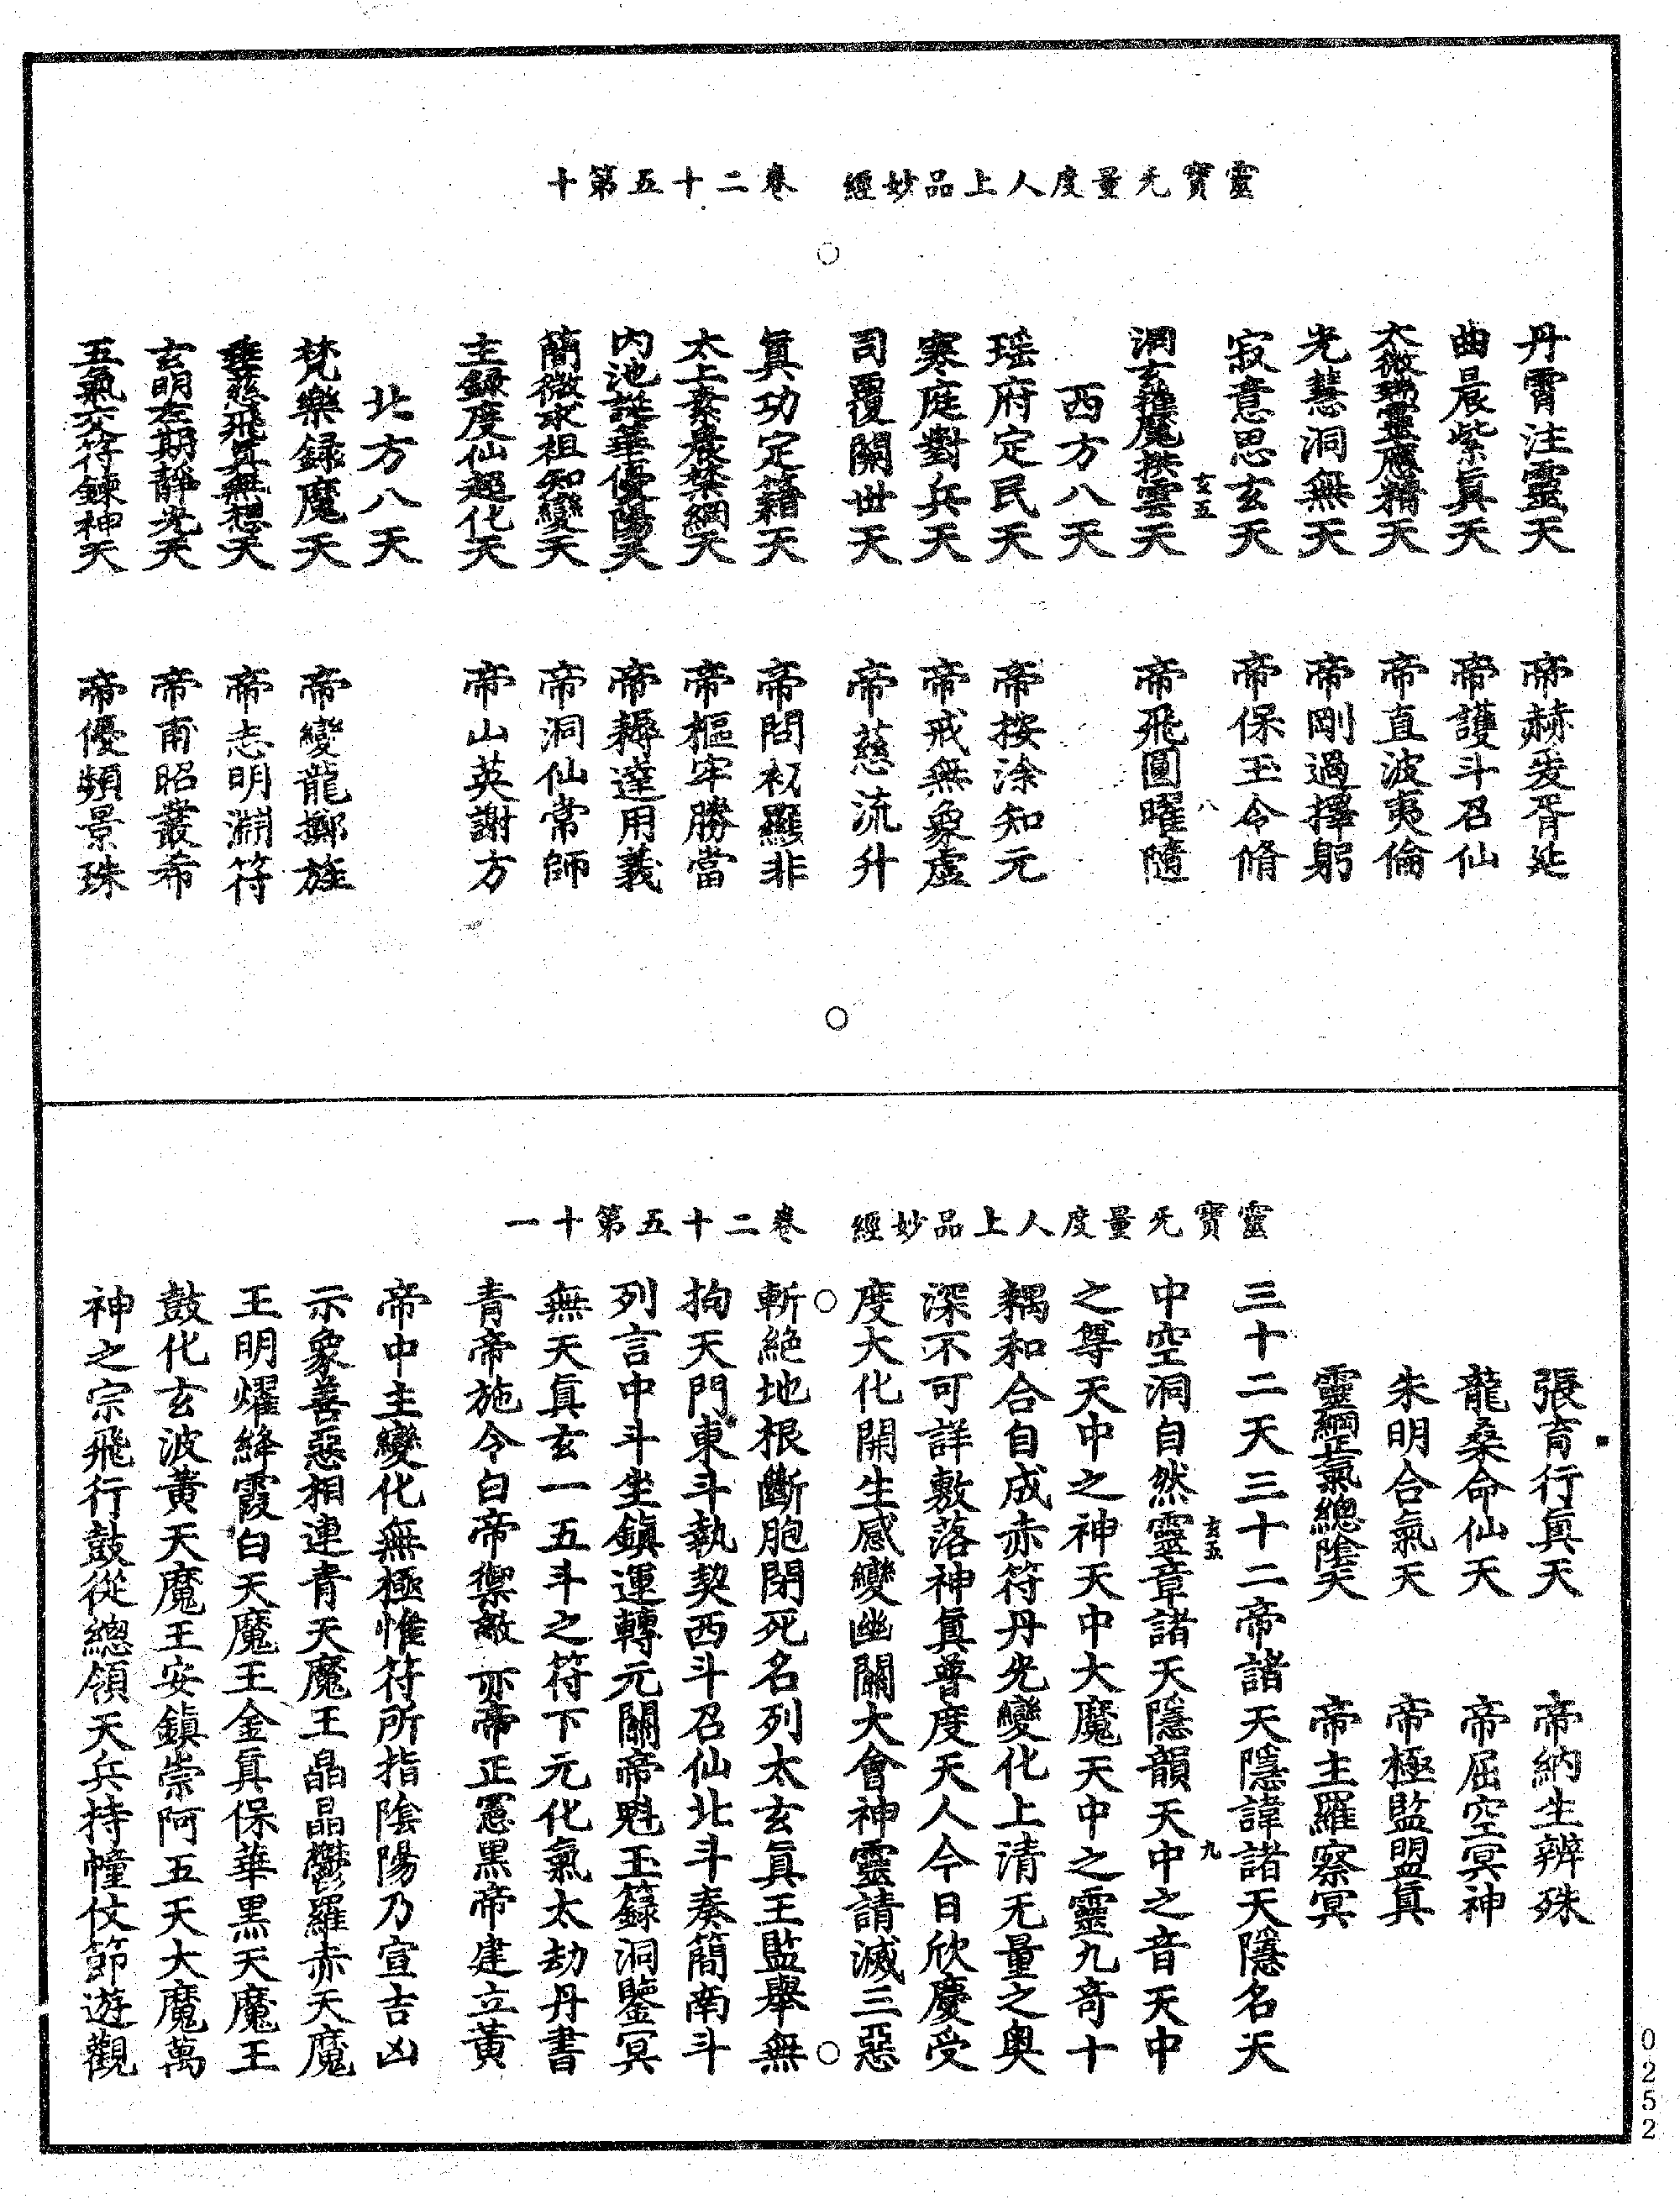 靈寶无量度人上品妙經　卷二十五第十
丹霄注靈天　帝赫爰胥延
曲晨紫真天　帝護斗召仙
太微瑞靈應精天　帝直波夷倫
光慧洞無天　帝剛過擇躬
寂意思玄天　帝保玉令脩
玄五　八
洞玄攝魔挾雲天　帝飛圓曜隨
西方八天
瑶府定民天　帝按涂知元
寒庭對兵天　帝戒無象虛
司覆開世天　帝慈流升
真功定籍天　帝問权顯非
太上素晨業綱天　帝樞牢勝當
内池誕華優陽天　帝耨達用義
簡微永祖知變天　帝洞仙常師
主録度仙超化天　帝山英謝方
北方八天
梵樂録魔天　帝變龍擲旌
垂慈飛真無想天　帝志明淵符
玄明左期靜光天　帝甫昭叢希
五氣交符鍊神天　帝優頻景珠
靈寶无量度人上品妙經　卷二十五第十一
張育行真天　帝納生辨殊
龍桑命仙天　帝屈空冥神
朱明合氣天　帝極監盟真
靈綱正氣總陰天　帝主羅察冥
三十二天三十二帝諸天隱諱諸天隱名天
中空洞自然靈章諸天隱韻天中之音天中
玄五　九
之尊天中之神天中大魔天中之靈九奇十
耦和合自成赤符丹光變化上清无量之奧
深不可詳敷落神真普度天人今日欣慶受
度大化開生感變幽關大會神靈請滅三惡
斬絕地根斷胞閉死名列太玄真王監舉無
拘天門東斗執契西斗召仙北斗奏簡南斗
列言中斗坐鎮運轉元關帝魁玉籙洞鑒冥
無天真玄一五斗之符下元化氣太劫丹書
青帝施令白帝禦敵赤帝正憲黑帝建立黃
帝中主變化無極惟符所指陰陽乃宣吉凶
示象善惡相連青天魔王晶晶鬱羅赤天魔
王明燿絳霞白天魔王金真保華黑天魔王
鼓化玄波黃天魔王安鎮崇阿五天大魔萬
神之宗飛行鼓從總領天兵持幢仗節遊觀
0252